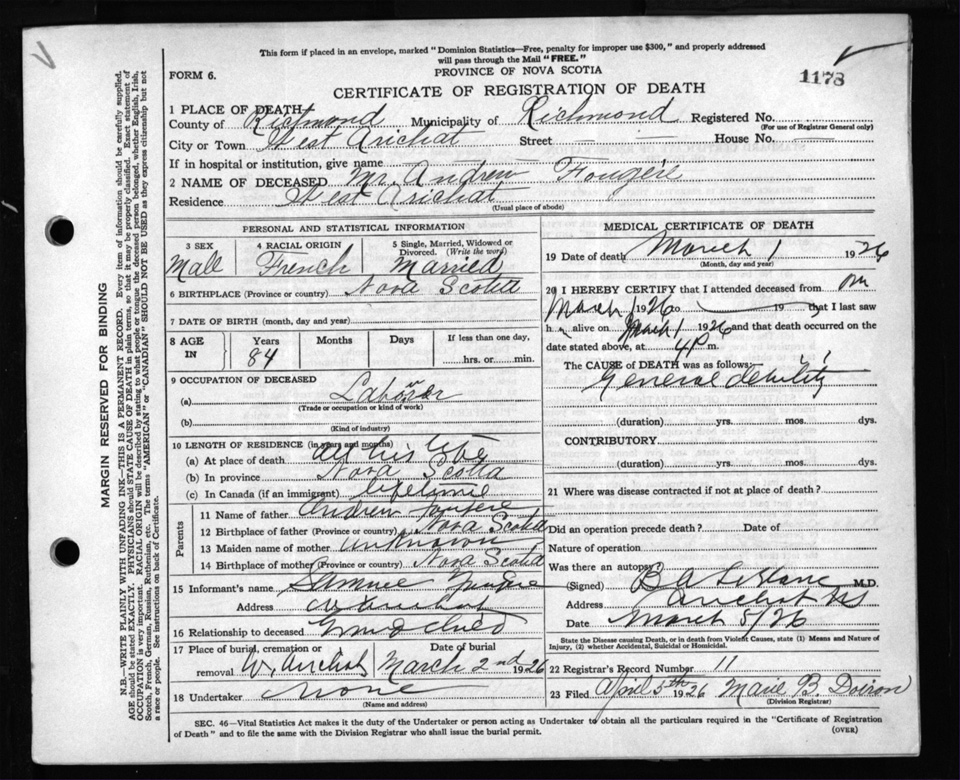 This form if placed in an envelope, marked "Dominion Statistics—Free, penalty for improper use $300," and properly addressed
will pass through the Mail "FREE."
PROVINCE OF NOVA SCOTIA
FORM 6.
1178
CERTIFICATE OF REGISTRATION OF DEATH
1 PLACE OF DEATH
County of Richmond Municipality of Richmond Registered No.
(For use of Registrar General only)
City or Town West Arichat Street — House No. —
If in hospital or institution, give name
2 NAME OF DECEASED Mr. Andrew Fougère
Residence West Arichat
(Usual place of abode)
PERSONAL AND STATISTICAL INFORMATION
3 SEX 4 RACIAL ORIGIN 5 Single, Married, Widowed or
Divorced. (Write the word)
Male French Married
6 BIRTHPLACE (Province or country) Nova Scotia
7 DATE OF BIRTH (month, day and year)
8 AGE IN Years Months Days If less than one day,
84 hrs. or min.
9 OCCUPATION OF DECEASED
(a) Laborer
(Trade or occupation or kind of work)
(b)
(Kind of industry)
10 LENGTH OF RESIDENCE (in years and months)
(a) At place of death All his life
(b) In province Nova Scotia
(c) In Canada (if an immigrant) lifetime
Parents
11 Name of father Andrew Fougere
12 Birthplace of father (Province or country) Nova Scotia
13 Maiden name of mother unknown
14 Birthplace of mother (Province or country) Nova Scotia
15 Informant's name
Address W Arichat
16 Relationship to deceased Grand child
17 Place of burial, cremation or Date of burial
removal W. Arichat March 2nd 1926
18 Undertaker None
(Name and address)
MEDICAL CERTIFICATE OF DEATH
19 Date of death March 1 1926
(Month, day and year)
20 I HEREBY CERTIFY that I attended deceased from on
March 1 1926 to 19 that I last saw
h alive on March 1 1926 and that death occurred on the
date stated above, at 4 P m.
The CAUSE OF DEATH was as follows:
General debility
(duration) yrs. mos. dys.
CONTRIBUTORY
(duration) yrs. mos. dys.
21 Where was disease contracted if not at place of death?
Did an operation precede death? Date of
Nature of operation
Was there an autopsy?
(Signed) B A LeBlanc M.D.
Address Arichat NS
Date March 5/26
State the Disease causing Death, or in death from Violent Causes, state (1) Means and Nature of
Injury, (2) whether Accidental, Suicidal or Homicidal.
22 Registrar's Record Number 11
23 Filed April 5th 1926 Marie B. Doiron
(Division Registrar)
SEC. 46—Vital Statistics Act makes it the duty of the Undertaker or person acting as Undertaker to obtain all the particulars required in the "Certificate of Registration
of Death" and to file the same with the Division Registrar who shall issue the burial permit.
(OVER)
MARGIN RESERVED FOR BINDING
N.B.—WRITE PLAINLY WITH UNFADING INK—THIS IS A PERMANENT RECORD. Every item of information should be carefully supplied.
AGE should be stated EXACTLY. PHYSICIANS should STATE CAUSE OF DEATH in plain terms, so that it may be properly classified. Exact statement of
OCCUPATION is very important. RACIAL ORIGIN will be described by stating to what people or tongue the deceased person belonged, whether English, Irish,
Scotch, French, German, Russian, Ruthenian, etc. The terms "AMERICAN" or "CANADIAN" SHOULD NOT BE USED as they express citizenship but not
a race or people. See instructions on back of Certificate.